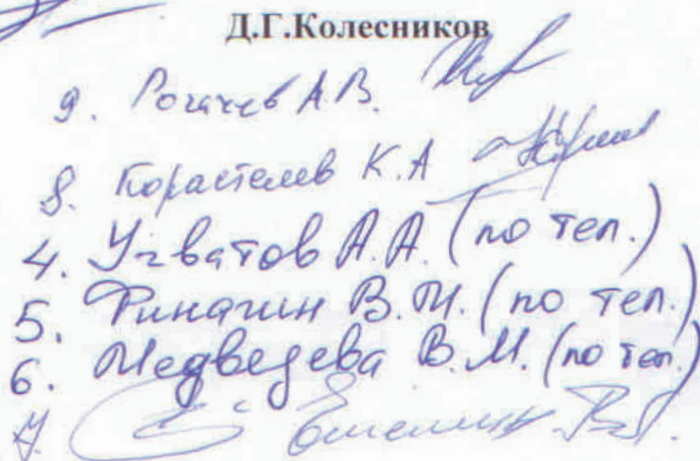 Д.Г.Колесников
9. Рогачев А.В.
8. Корастелев К.А
4. Угватов А.А. (по тел.)
5. Финагин В.И. (по тел.)
6. Медведева В.М. (по тел.)
7.